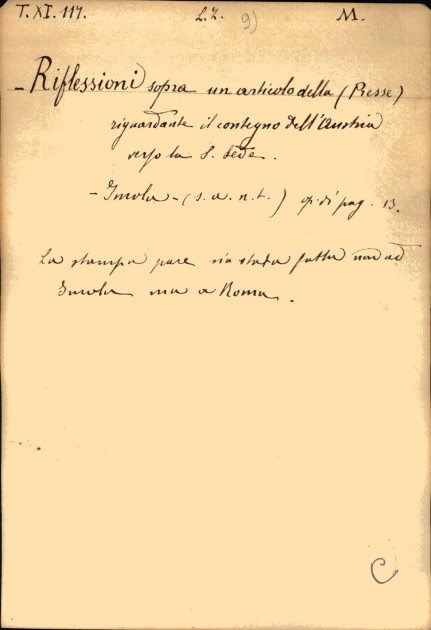 T. XI. 117. L.Z. 9) M.
- Riflessioni sopra un articolo della (Presse)
riguardante il contegno dell'Austria
verso la S. Sede.
- Imola - (s. a. n. t.) op. di pag. 13.
La stampa pare sia stata fatta non ad
Imola ma a Roma.
C